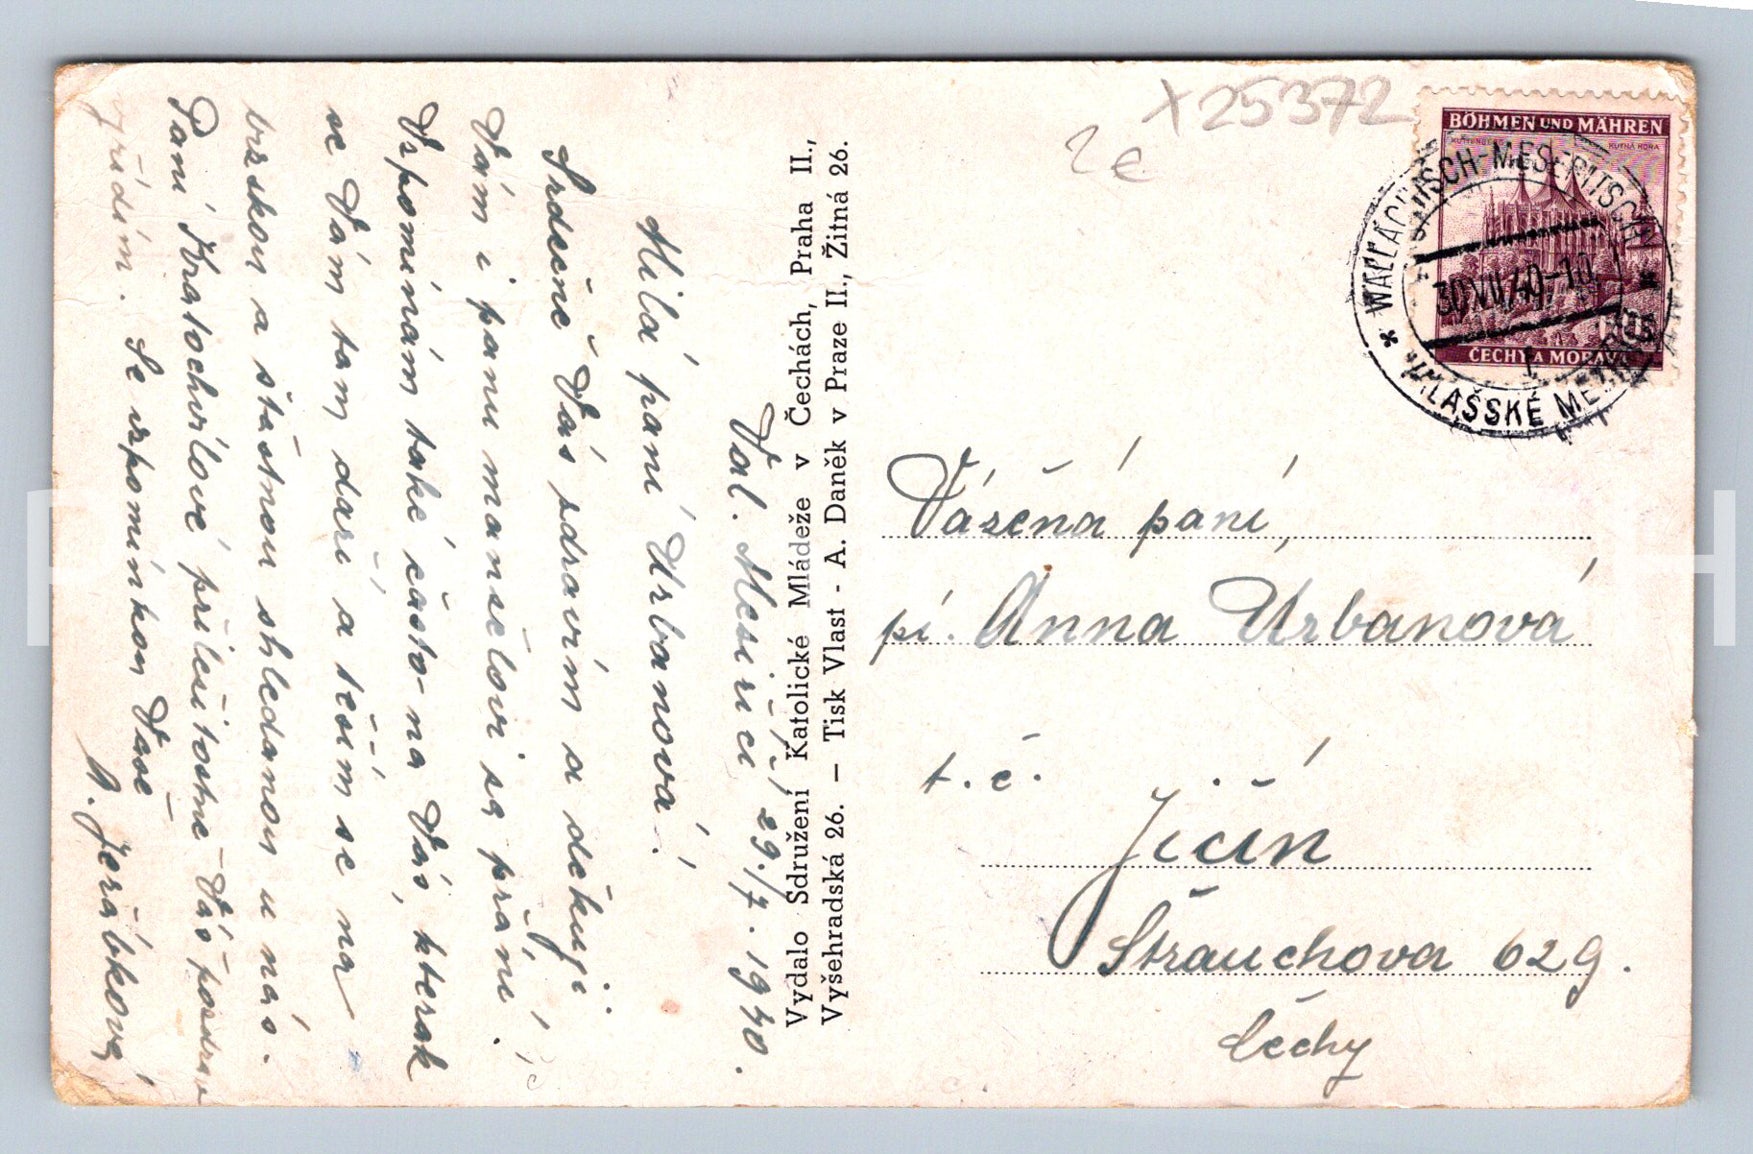 Val. Meziříčí 29./7. 1940.
Milá paní Urbanová!
Srdečně Vás zdravím a děkuji
Vám i panu manželovi za přání.
Vzpomínám také často na Vás, kterak
se Vám tam daří a těším se na
brzskou a šťastnou shledanou u nás.
Paní Kratochvílové příležitostně Vás pozdrav
vyřídím. Se vzpomínkou Vaše
A. Jeřábková
Vydalo Sdružení Katolické Mládeže v Čechách, Praha II.,
Vyšehradská 26. — Tisk Vlast - A. Daněk v Praze II., Žitná 26.
x25372
2e
BÖHMEN UND MÄHREN
KUTTENBERG KUTNÁ HORA
ČECHY A MORAVA
* WALLACHISCH-MESERITSCH *
30.VII.40-10
VALAŠSKÉ MEZIŘÍČÍ
Vážená paní,
pí. Anna Urbanová
t. č.
Jičín
Štrauchova 629.
Čechy